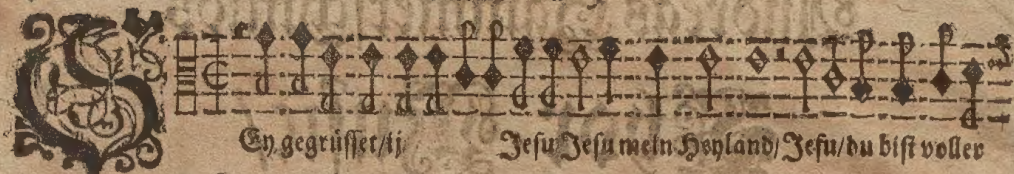 SEy gegrüsset/ij Jesu Jesu mein Heyland/Jesu/du bist voller